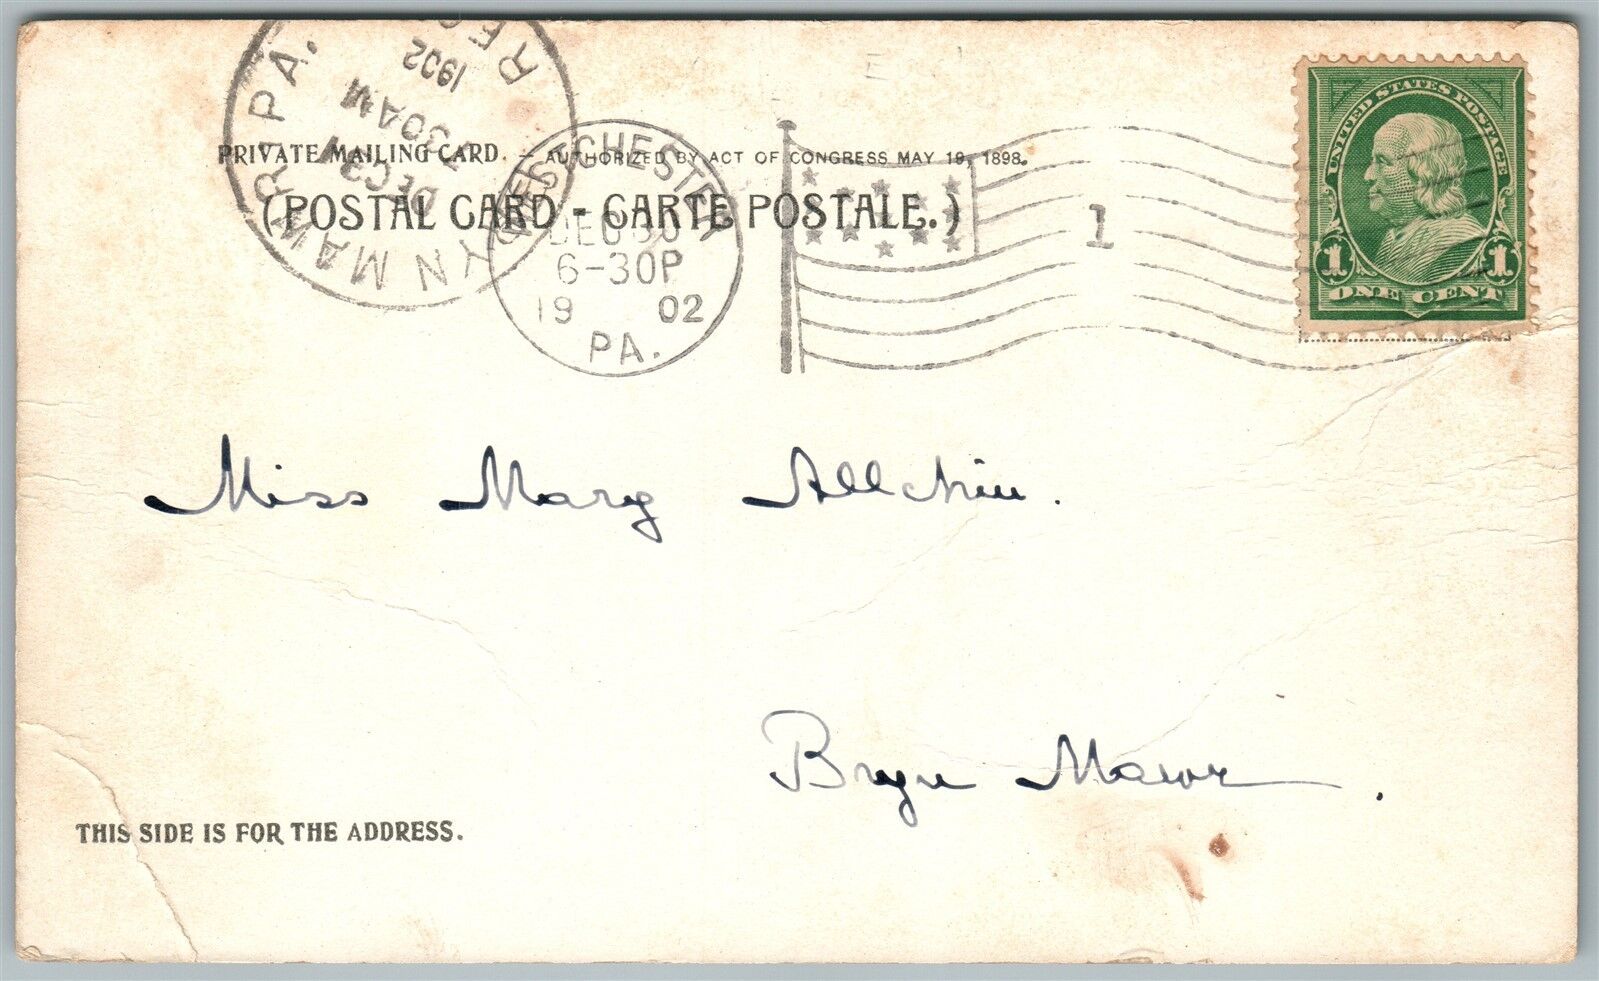 PRIVATE MAILING CARD. - AUTHORIZED BY ACT OF CONGRESS MAY 19, 1898.
(POSTAL CARD - CARTE POSTALE.)
YN MAWR, PA.
DEC 31
7 30 AM
1902
REC
WEST CHESTER
DEC 30
6-30P
19 02
PA.
1
UNITED STATES POSTAGE
1 1
ONE CENT
Miss Mary Allchin.
Bryn Mawr.
THIS SIDE IS FOR THE ADDRESS.